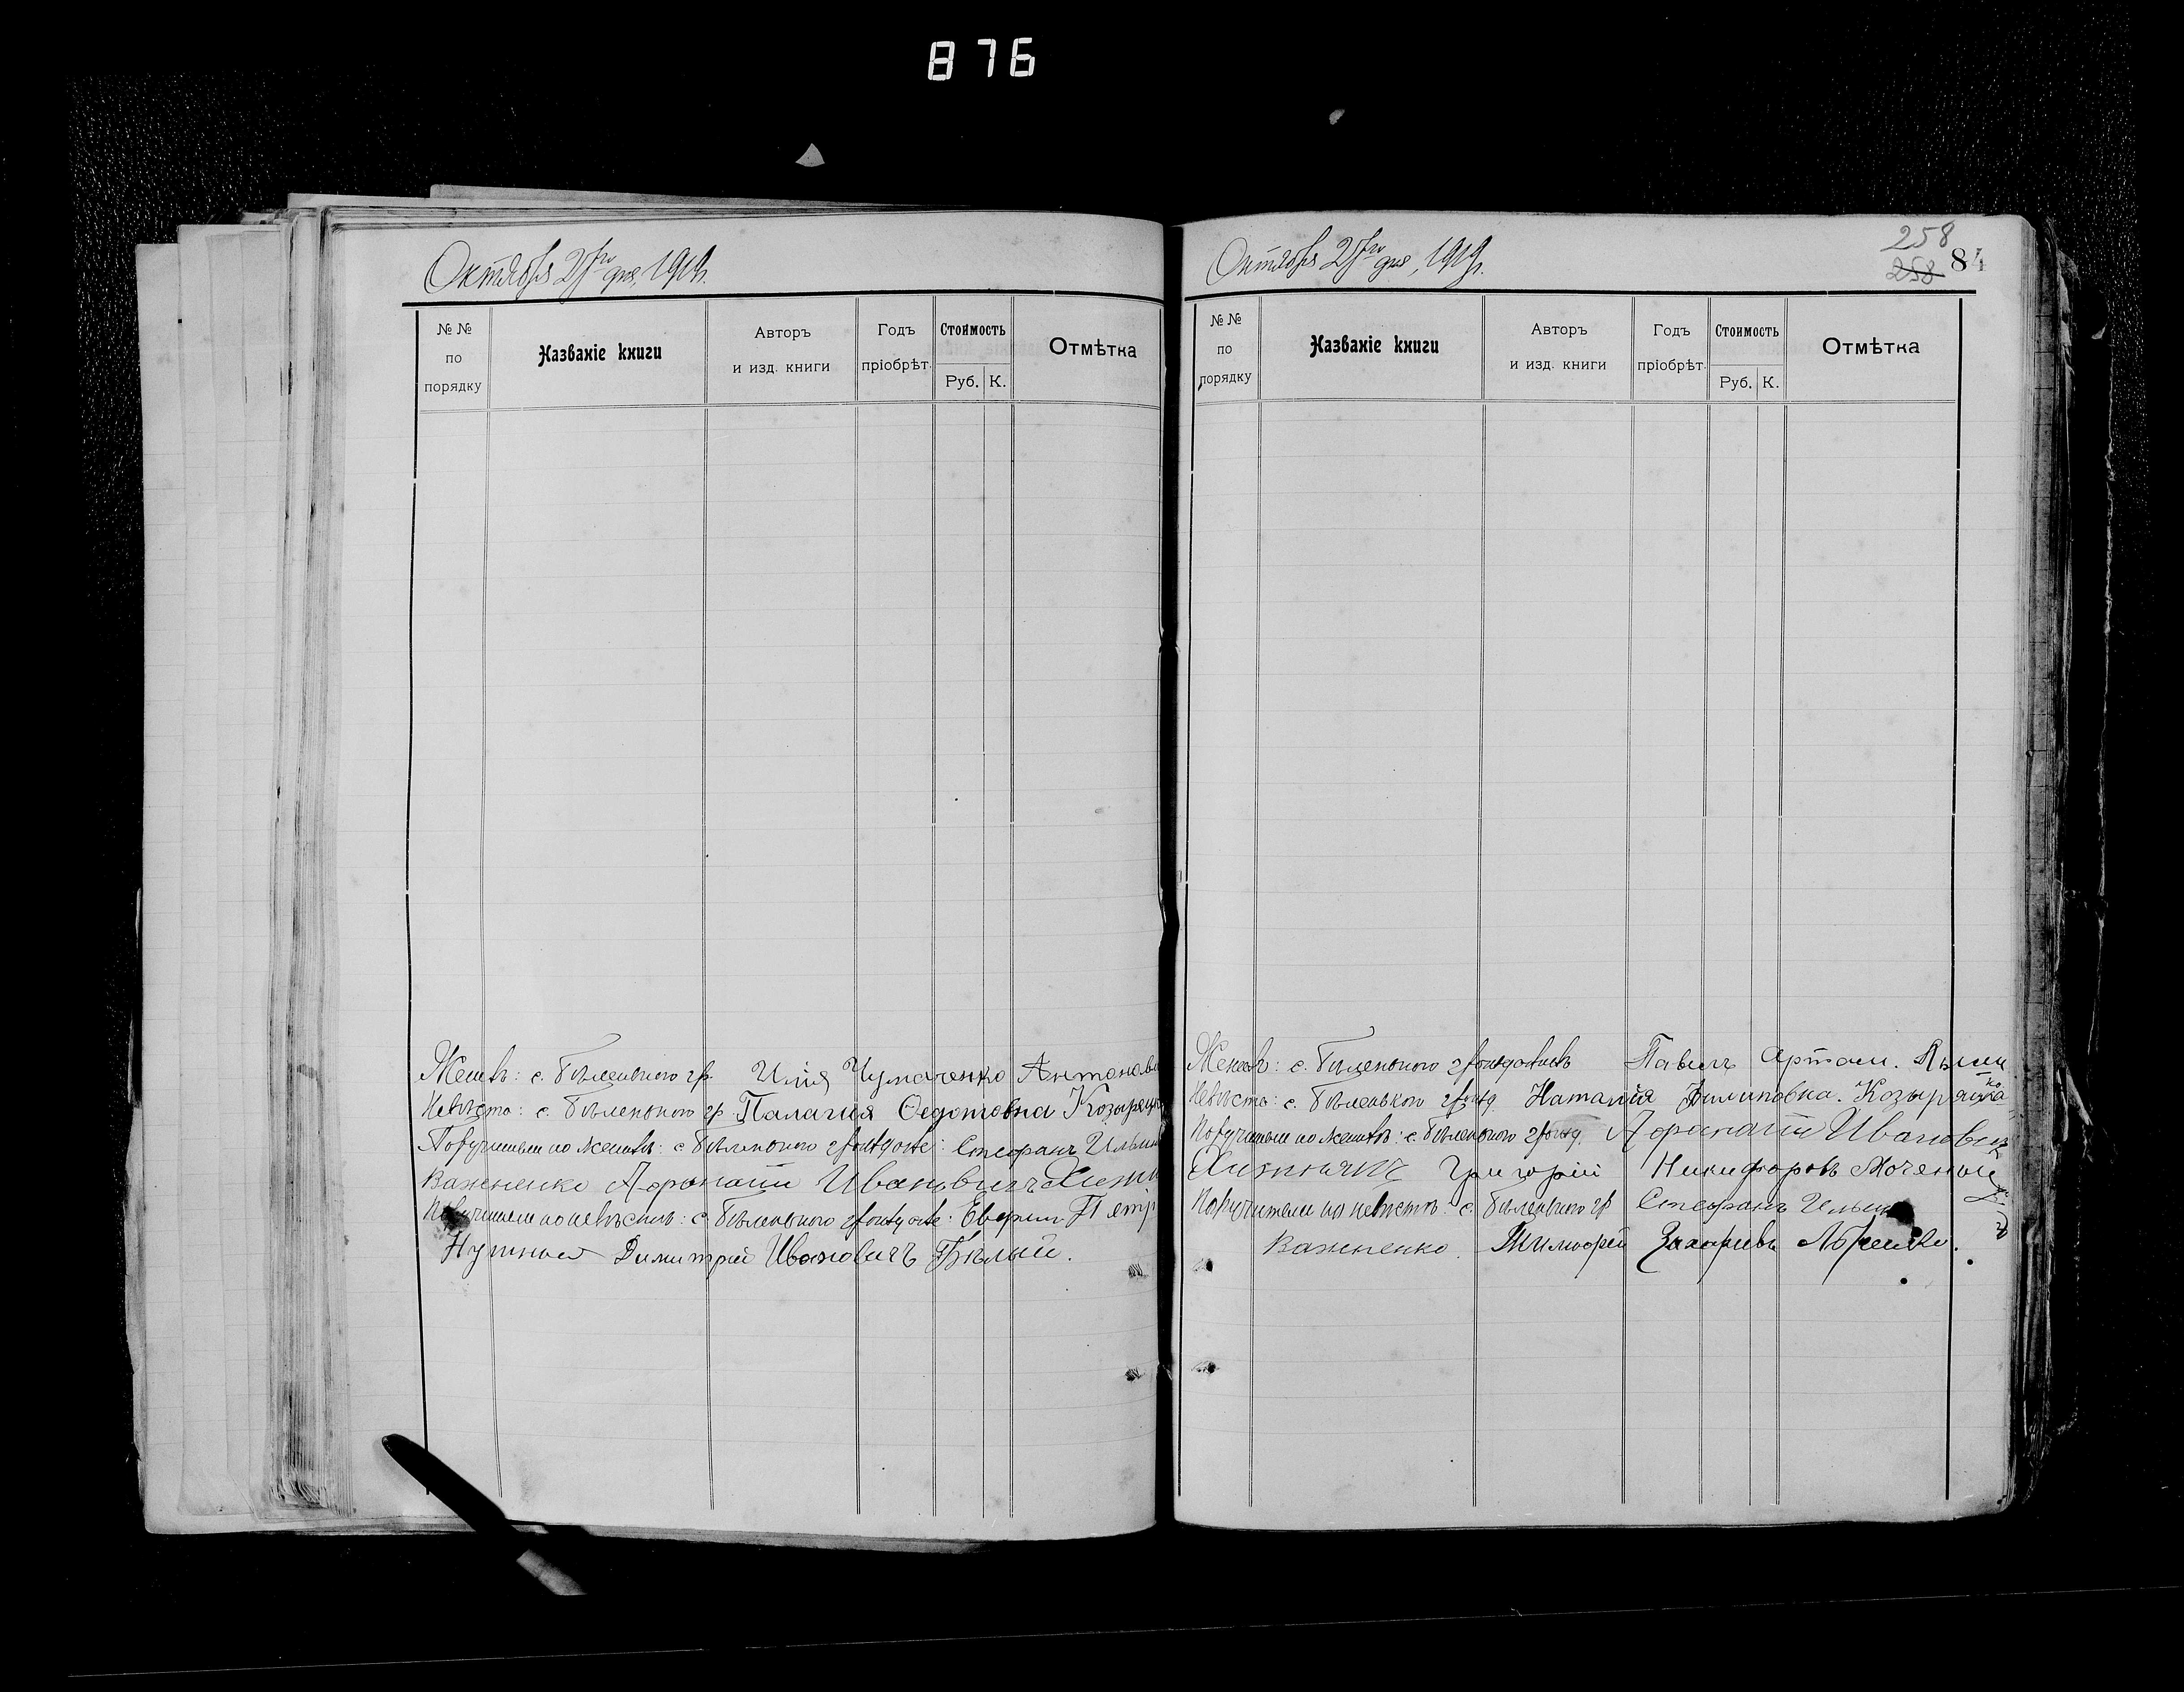 876
Октября 27го дня, 1919г.
№ № по порядку
Названіе книги
Авторъ и изд. книги
Годъ пріобрѣт.
Стоимость
Руб. К.
Отмѣтка
Женихъ: с. Бѣленького гр. Илія Чумаченко Антонови
Невѣста: с. Бѣленького гр. Палагия Ѳедотовна Козыряцк
Поручители по женихѣ: с. Бѣленького Стефанъ Ильин
Важненко Афанасий Ивановичъ Хижн
Поручители по невѣстѣ: с. Бѣленького Евфим. Петр
Димитрий Ивановичъ Бѣлый.
Октября 27го дня, 1919г.
258
258 84
№ № по порядку
Названіе книги
Авторъ и изд. книги
Годъ пріобрѣт.
Стоимость
Руб. К.
Отмѣтка
Женихъ: с. Бѣленького Павелъ Артам.
Невѣста: с. Бѣленького Наталия Филиповна. Козыряцкая
Поручители по женихѣ: с. Бѣленького Афанасий Ивановичъ
Хижнякъ Григорій Никифоровъ Моченый
Поручители по невѣстѣ: с. Бѣленького гр Стефанъ Ильин
Важненко. Тимофей Захарiевъ